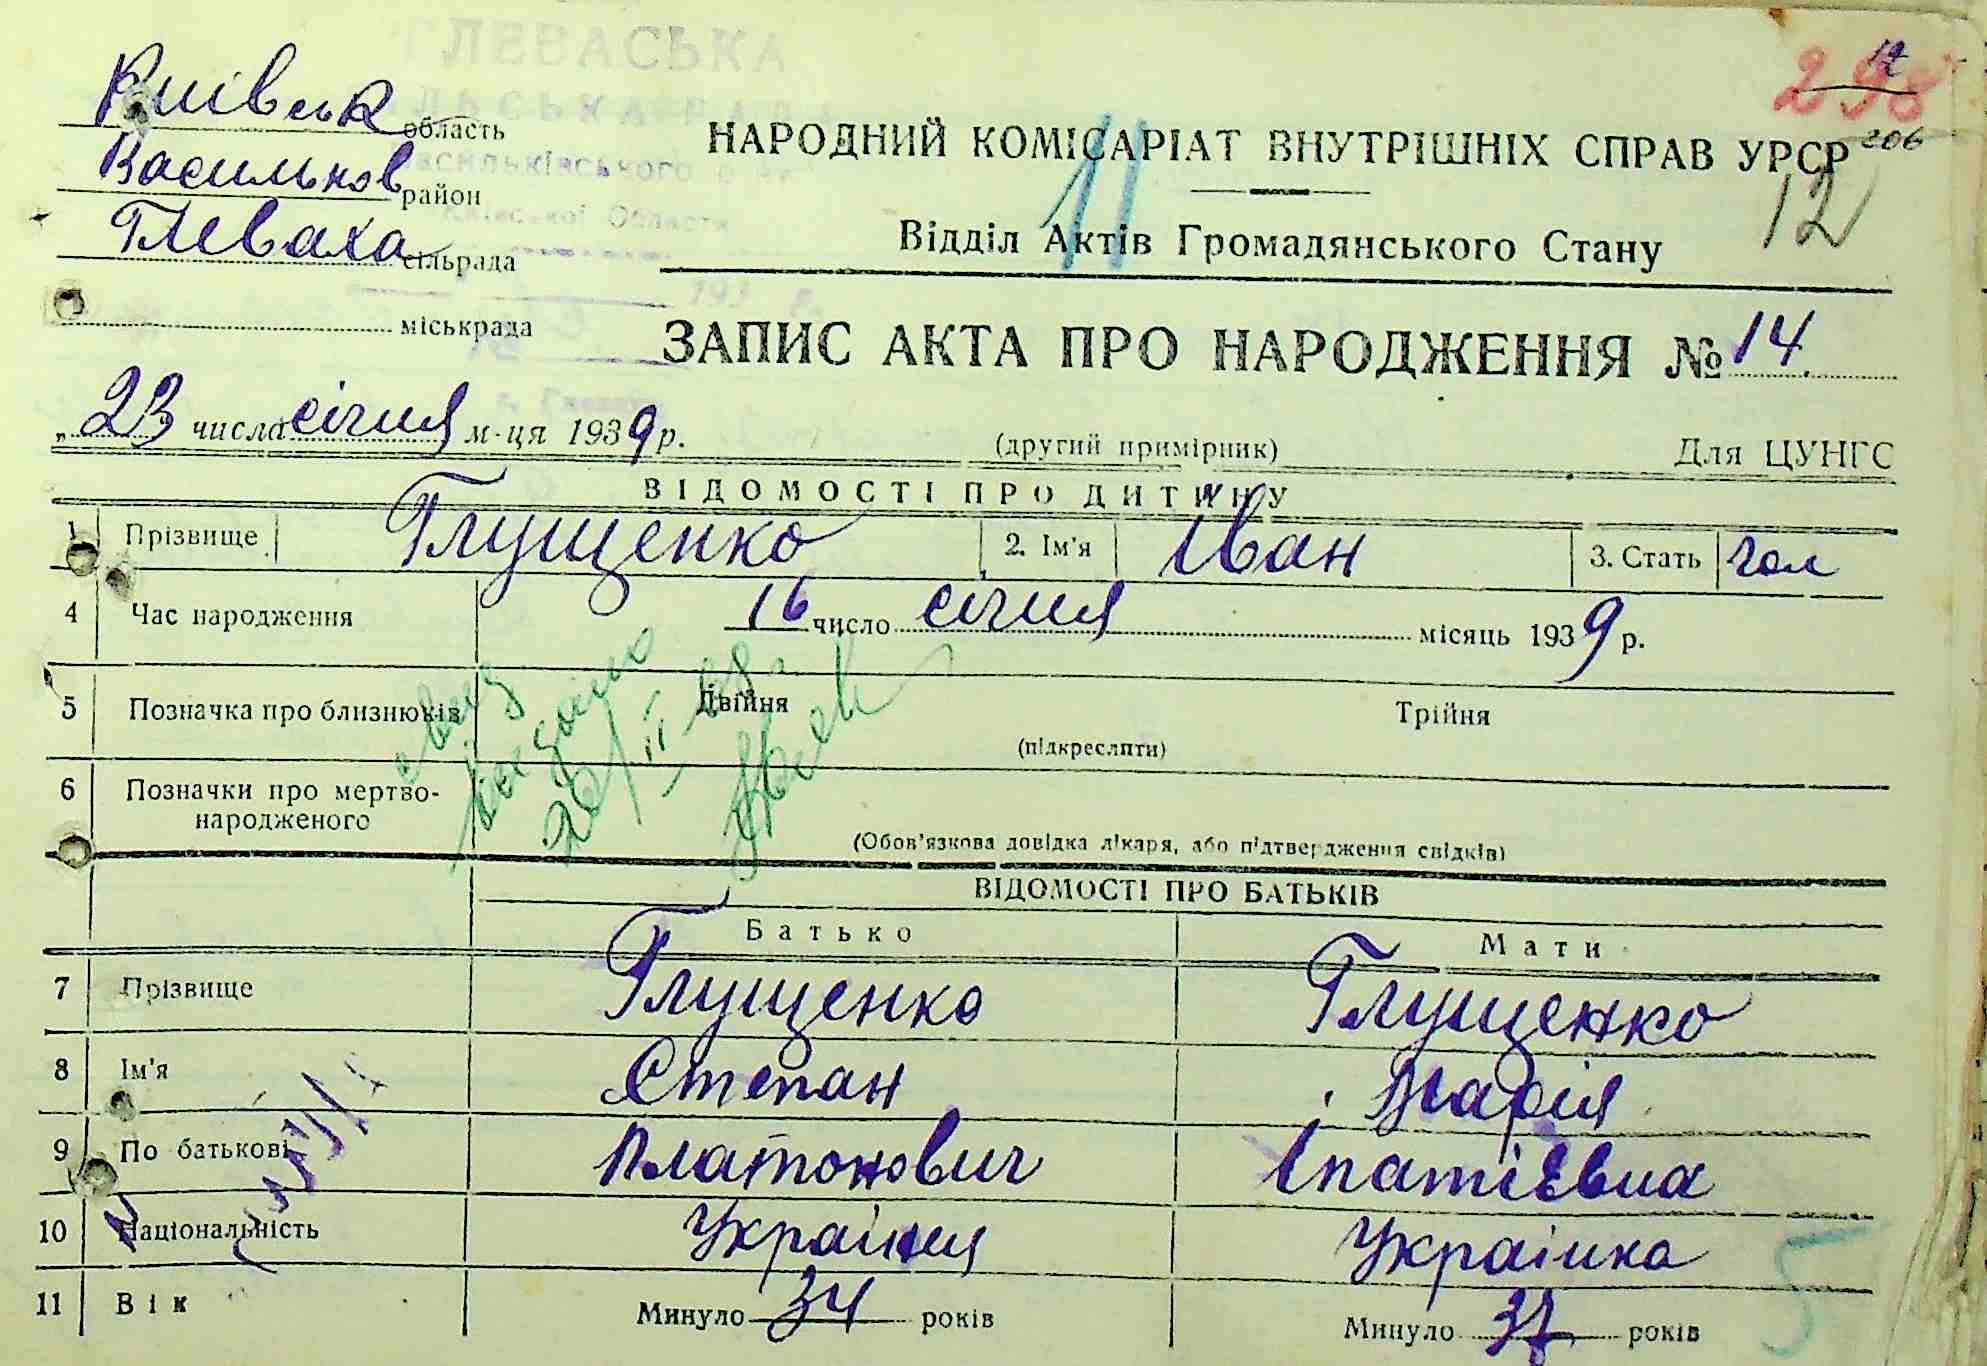 ГЛЕВАСЬКА
298
Київськ область
Васильков район
206
НАРОДНИЙ КОМІСАРІАТ ВНУТРІШНІХ СПРАВ УРСР
11
12
Глеваха сільрада
Відділ Актів Громадянського Стану
міськрада
ЗАПИС АКТА ПРО НАРОДЖЕННЯ № 14.
„23 числа січня м-ця 1939 р.
(другий примірник)
Для ЦУНГС
ВІДОМОСТІ ПРО ДИТИНУ
1 Прізвище Глущенко 2. Ім'я Іван 3. Стать чол
4 Час народження 16 число січня місяць 1939 р.
5 Позначка про близнюків Двійня Трійня
(підкреслити)
6 Позначки про мертво-
народженого
(Обов'язкова довідка лікаря, або підтвердження свідків)
ВІДОМОСТІ ПРО БАТЬКІВ
Батько Мати
7 Прізвище Глущенко Глущенко
8 Ім'я Степан Марія
9 По батькові Платонович Іпатіевна
10 Національність Українця Українка
11 Вік Минуло 34 років Минуло 37 років
5